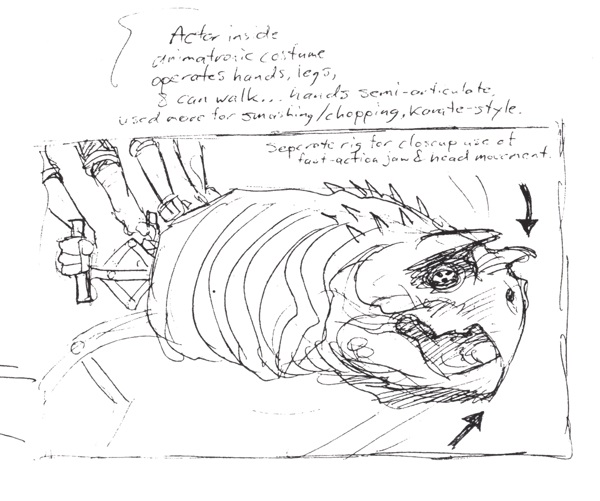 Actor inside
animatronic costume
operates hands, legs,
& can walk... hands semi-articulate,
used more for smashing/chopping, karate-style.
Seperate rig for closeup use of
fast-action jaw & head movement.